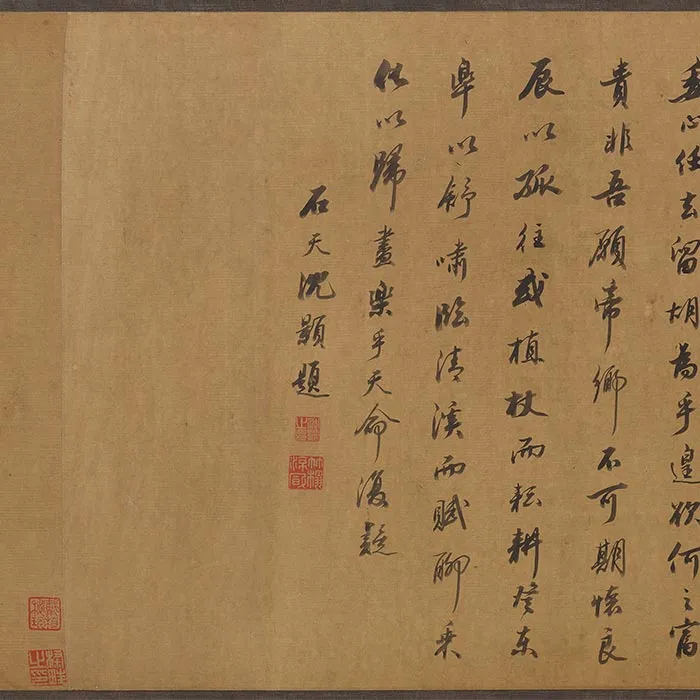 委心任去留胡為乎遑欲何之富
貴非吾願帝鄉不可期懷良
辰以孤往或植杖而耘耕登東
皐以舒嘯臨清溪而賦聊乘
化以歸盡樂乎天命復疑
石天沈顥題